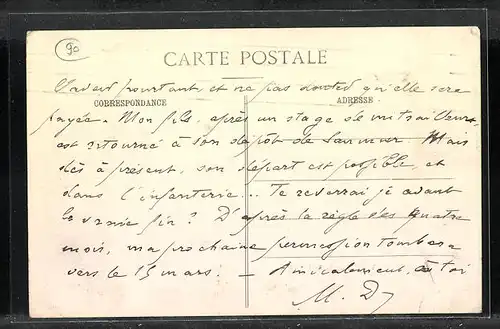 90
CARTE POSTALE
pourtant, et ne pas douter qu'elle sera
CORRESPONDANCE
ADRESSE
payée. Mon fils, après un stage de mitrailleurs
est retourné à son dépôt de Saumur. Mais
dès à présent, son départ est possible, et
dans l'infanterie... Te reverrai je avant
la vraie fin? D'après la règle des quatre
mois, ma prochaine permission tombera
vers le 15 mars. — Amicalement, à toi
M. D